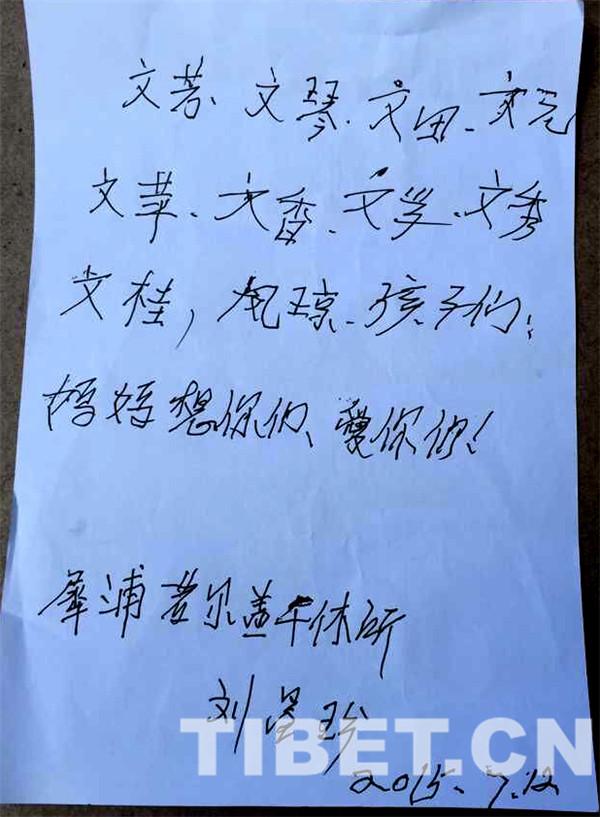 文芳、文琴、文田、文元
文苹、文香、文学、文秀
文桂，凤琼、孩子们：
妈妈想你们、爱你们！
犀浦若尔盖干休所
刘星珍
2015.7.12
TIBET.CN